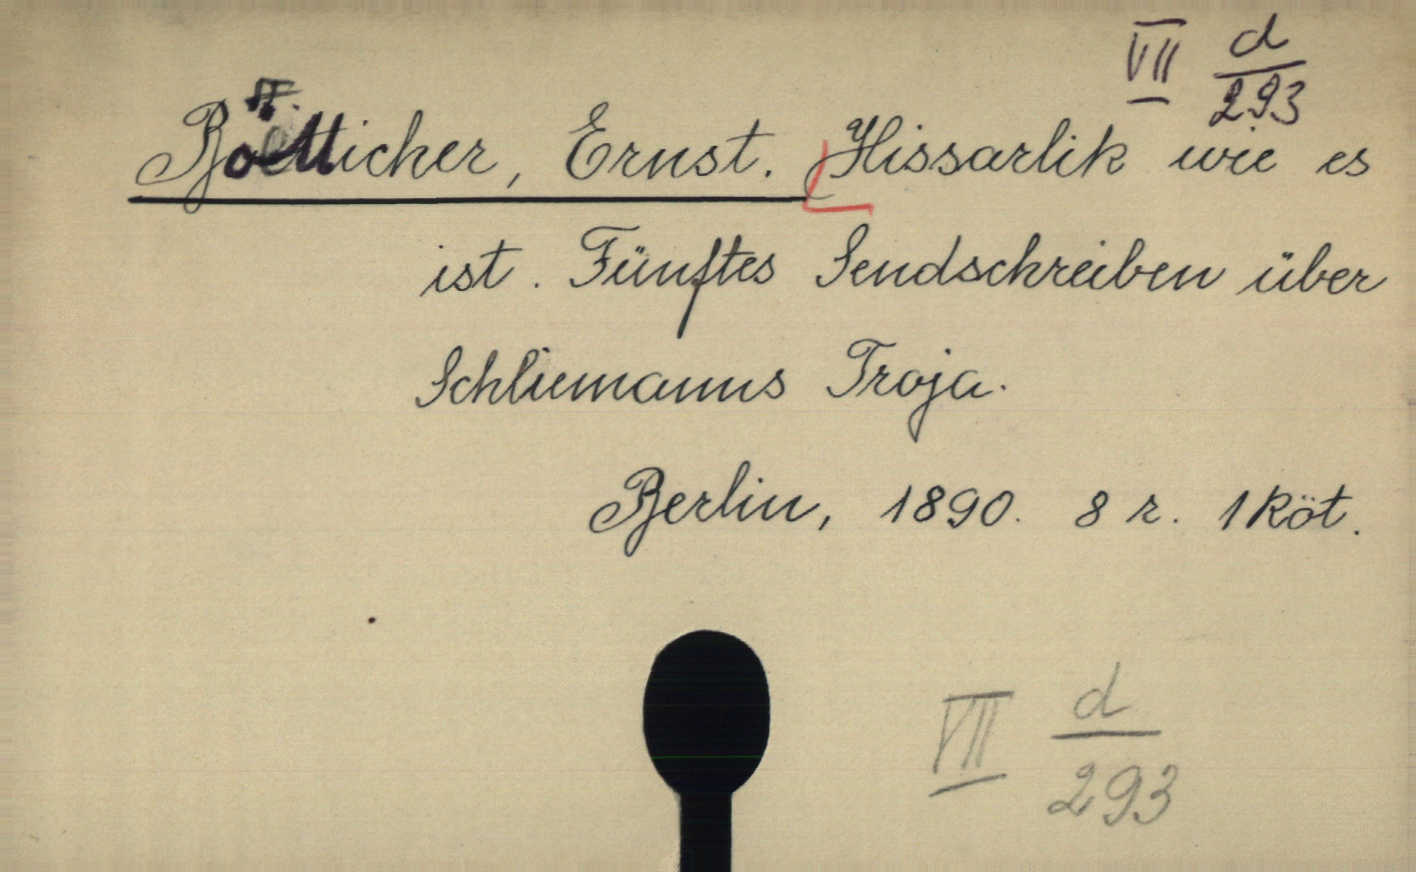 VII d/293
Boetticher, Ernst. Hissarlik wie es
ist. Fünftes Sendschreiben über
Schliemanns Troja.
Berlin, 1890. 8 r. 1 köt.
VII d/293